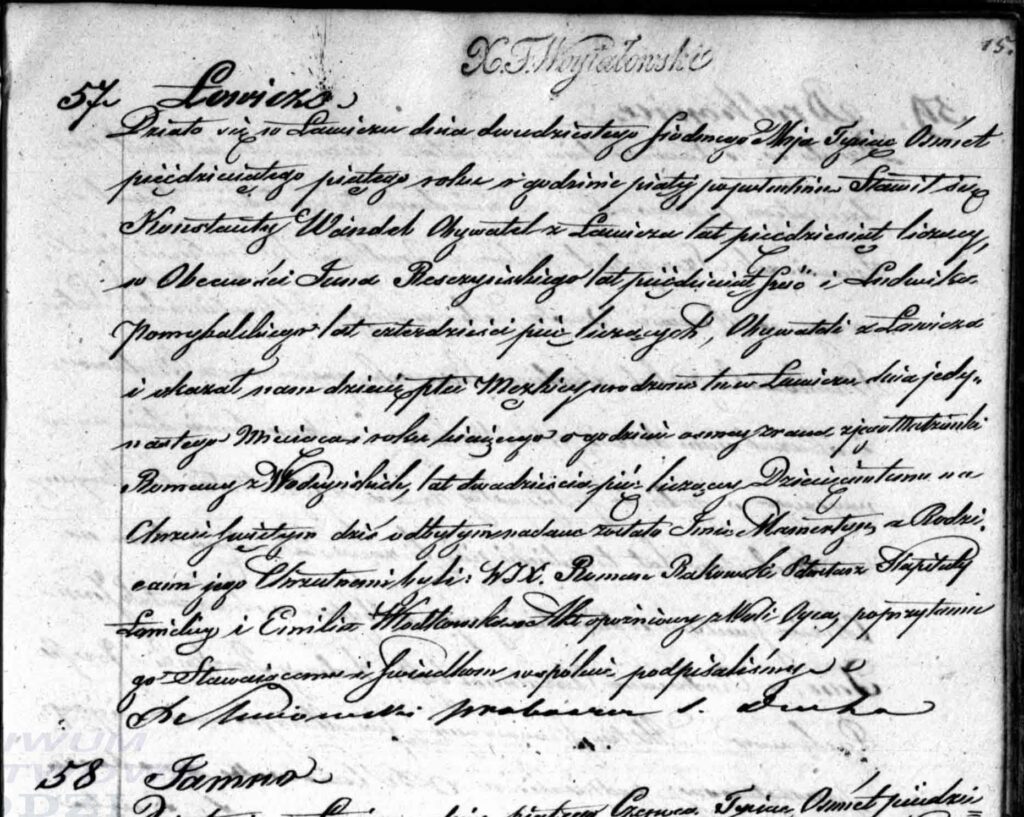 15.
X. F. Woytałowski
57. Łowicz.
Działo się w Łowiczu dnia dwudziestego siódmego Maja Tysiąc Osmset
pięćdziesiątego piątego roku o godzinie piąty popołudniu Stawił się
Konstanty Wandel Obywatel z Łowicza lat pięćdziesiąt liczący,
w Obecności Jana lat pięćdziesiąt sześć i Ludwika
Pomykalskiego lat czterdzieści pięć liczących, Obywateli z Łowicza
i okazał nam dziecię płci Męzkiey urodzone tu w Łowiczu dnia jedy-
nastego Miesiąca i roku bieżącego o godzinie osmey zrana z jego Małżonki
Romany z lat dwadzieścia pięć liczący Dziecięciu temu na
Chrzcie świętym dziś odbytym nadane zostało Imie Mamertyn, a Rodzi-
cami jego Chrzestnemi byli: WJX. Roman Rakowski Kapituły
i Emilia Akt opóźniony z Woli Oyca, poprzytanie
go Stawaiącemu i Świadkom wspólnie podpisaliśmy
58 Jamno
piątego Czerwca Tysiąc Osmset pięćdzie